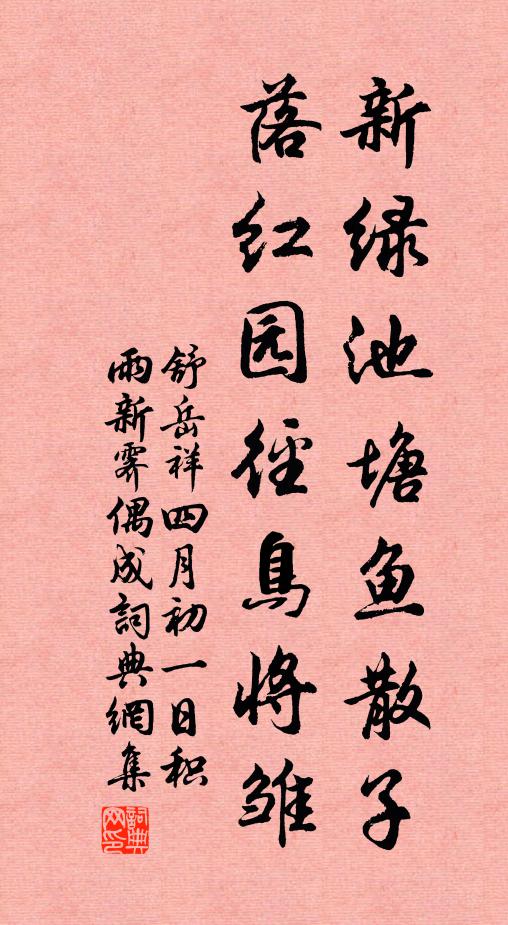 新绿池塘鱼散子
落红园径鳥将雏
舒岳祥四月初一日积
雨新霁偶成詞典網集
詞典网印